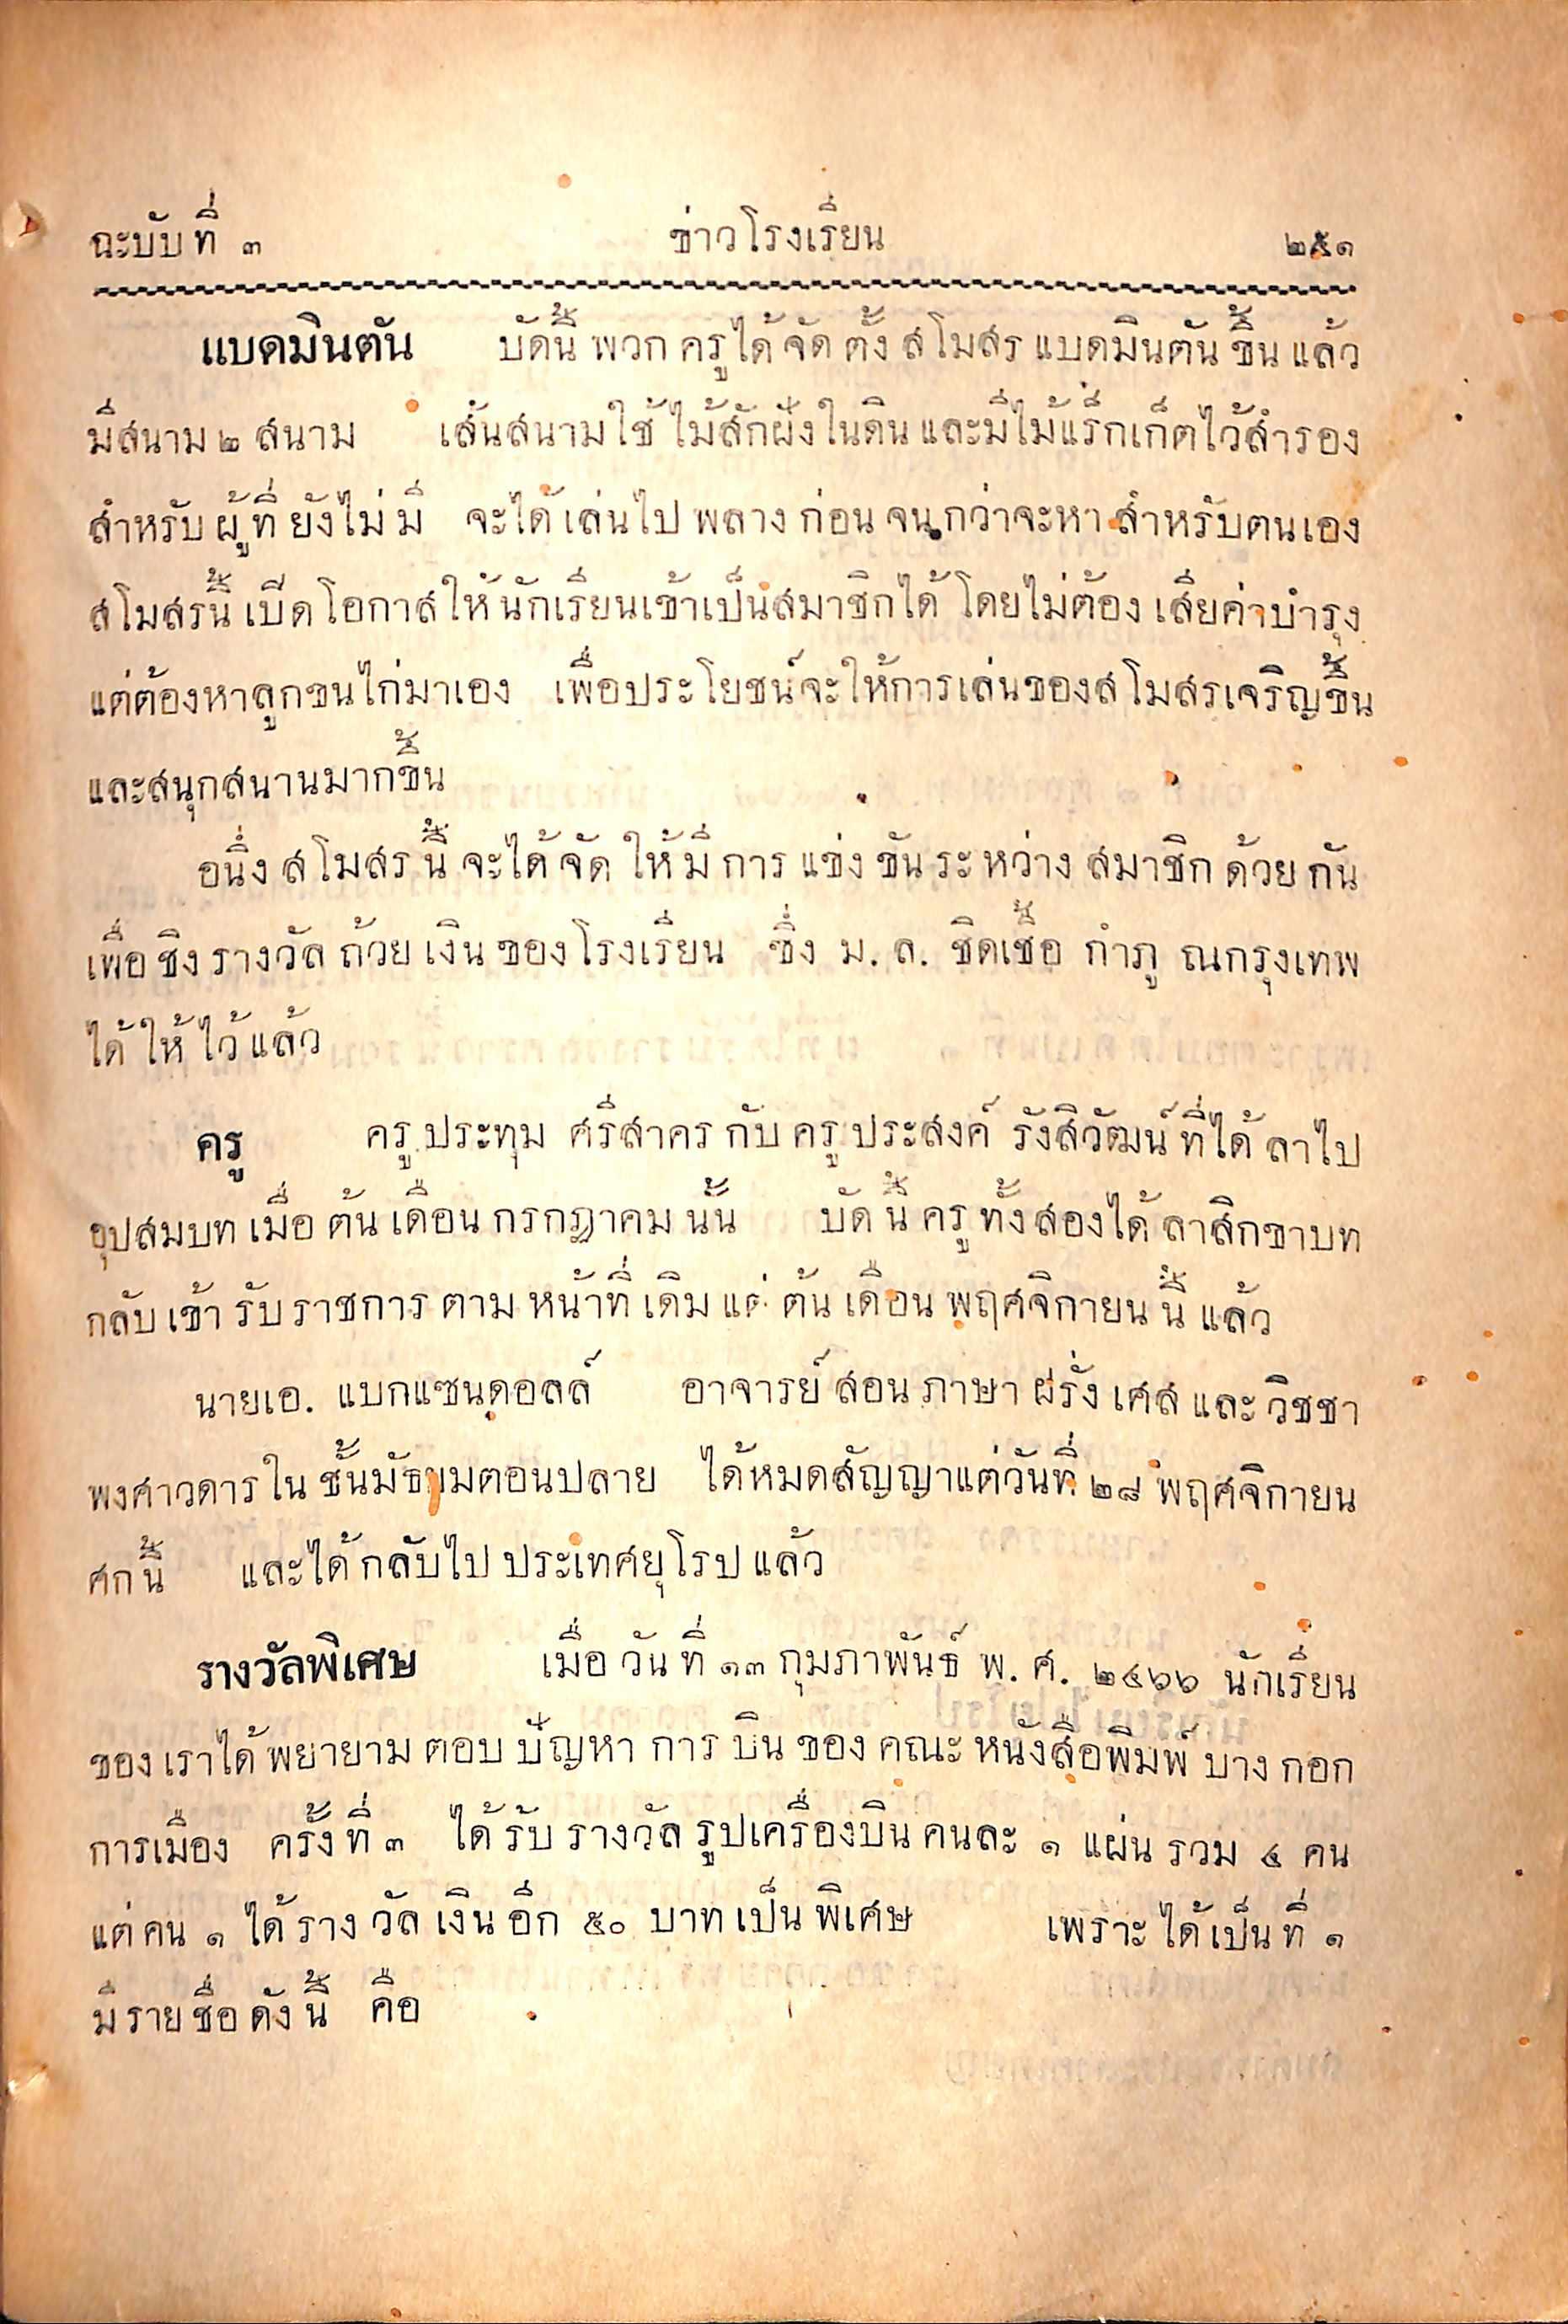 ฉะบับที่ ๓ ข่าวโรงเรียน ๒๕๑
แบดมินตัน บัดนี้พวกครูได้จัดตั้งสโมสรแบดมินตันขึ้นแล้ว
มีสนาม ๒ สนาม เส้นสนามใช้ไม้สักฝังในดินและมีไม้แร็กเก็ตไว้สำรอง
สำหรับผู้ที่ยังไม่มี จะได้เล่นไปพลางก่อนจนกว่าจะหาสำหรับตนเอง
สโมสรนี้เปิดโอกาสให้นักเรียนเข้าเป็นสมาชิกได้โดยไม่ต้องเสียค่าบำรุง
แต่ต้องหาลูกขนไก่มาเอง เพื่อประโยชน์จะให้การเล่นของสโมสรเจริญขึ้น
และสนุกสนานมากขึ้น
อนึ่งสโมสรนี้จะได้จัดให้มีการแข่งขันระหว่างสมาชิกด้วยกัน
เพื่อชิงรางวัลถ้วยเงินของโรงเรียน ซึ่ง ม. ล. ชิดเชื้อ กำภู ณกรุงเทพ
ได้ให้ไว้แล้ว
ครู ครูประทุม ศรีสาคร กับครูประสงค์ รังสิวัฒน์ ที่ได้ลาไป
อุปสมบทเมื่อต้นเดือนกรกฎาคมนั้น บัดนี้ครูทั้งสองได้ลาสิกขาบท
กลับเข้ารับราชการตามหน้าที่เดิมแต่ต้นเดือนพฤศจิกายนนี้แล้ว
นายเอ. แบกแซนดอลล์ อาจารย์สอนภาษาฝรั่งเศสและวิชชา
พงศาวดารในชั้นมัธยมตอนปลาย ได้หมดสัญญาแต่วันที่ ๒๘ พฤศจิกายน
ศกนี้ และได้กลับไปประเทศยุโรปแล้ว
รางวัลพิเศษ เมื่อวันที่ ๑๓ กุมภาพันธ์ พ. ศ. ๒๔๖๖ นักเรียน
ของเราได้พยายามตอบปัญหาการบินของคณะหนังสือพิมพ์บางกอก
การเมือง ครั้งที่ ๓ ได้รับรางวัลรูปเครื่องบินคนละ ๑ แผ่น รวม ๔ คน
แต่คน ๑ ได้รางวัลเงินอีก ๕๐ บาทเป็นพิเศษ เพราะได้เป็นที่ ๑
มีรายชื่อดังนี้ คือ